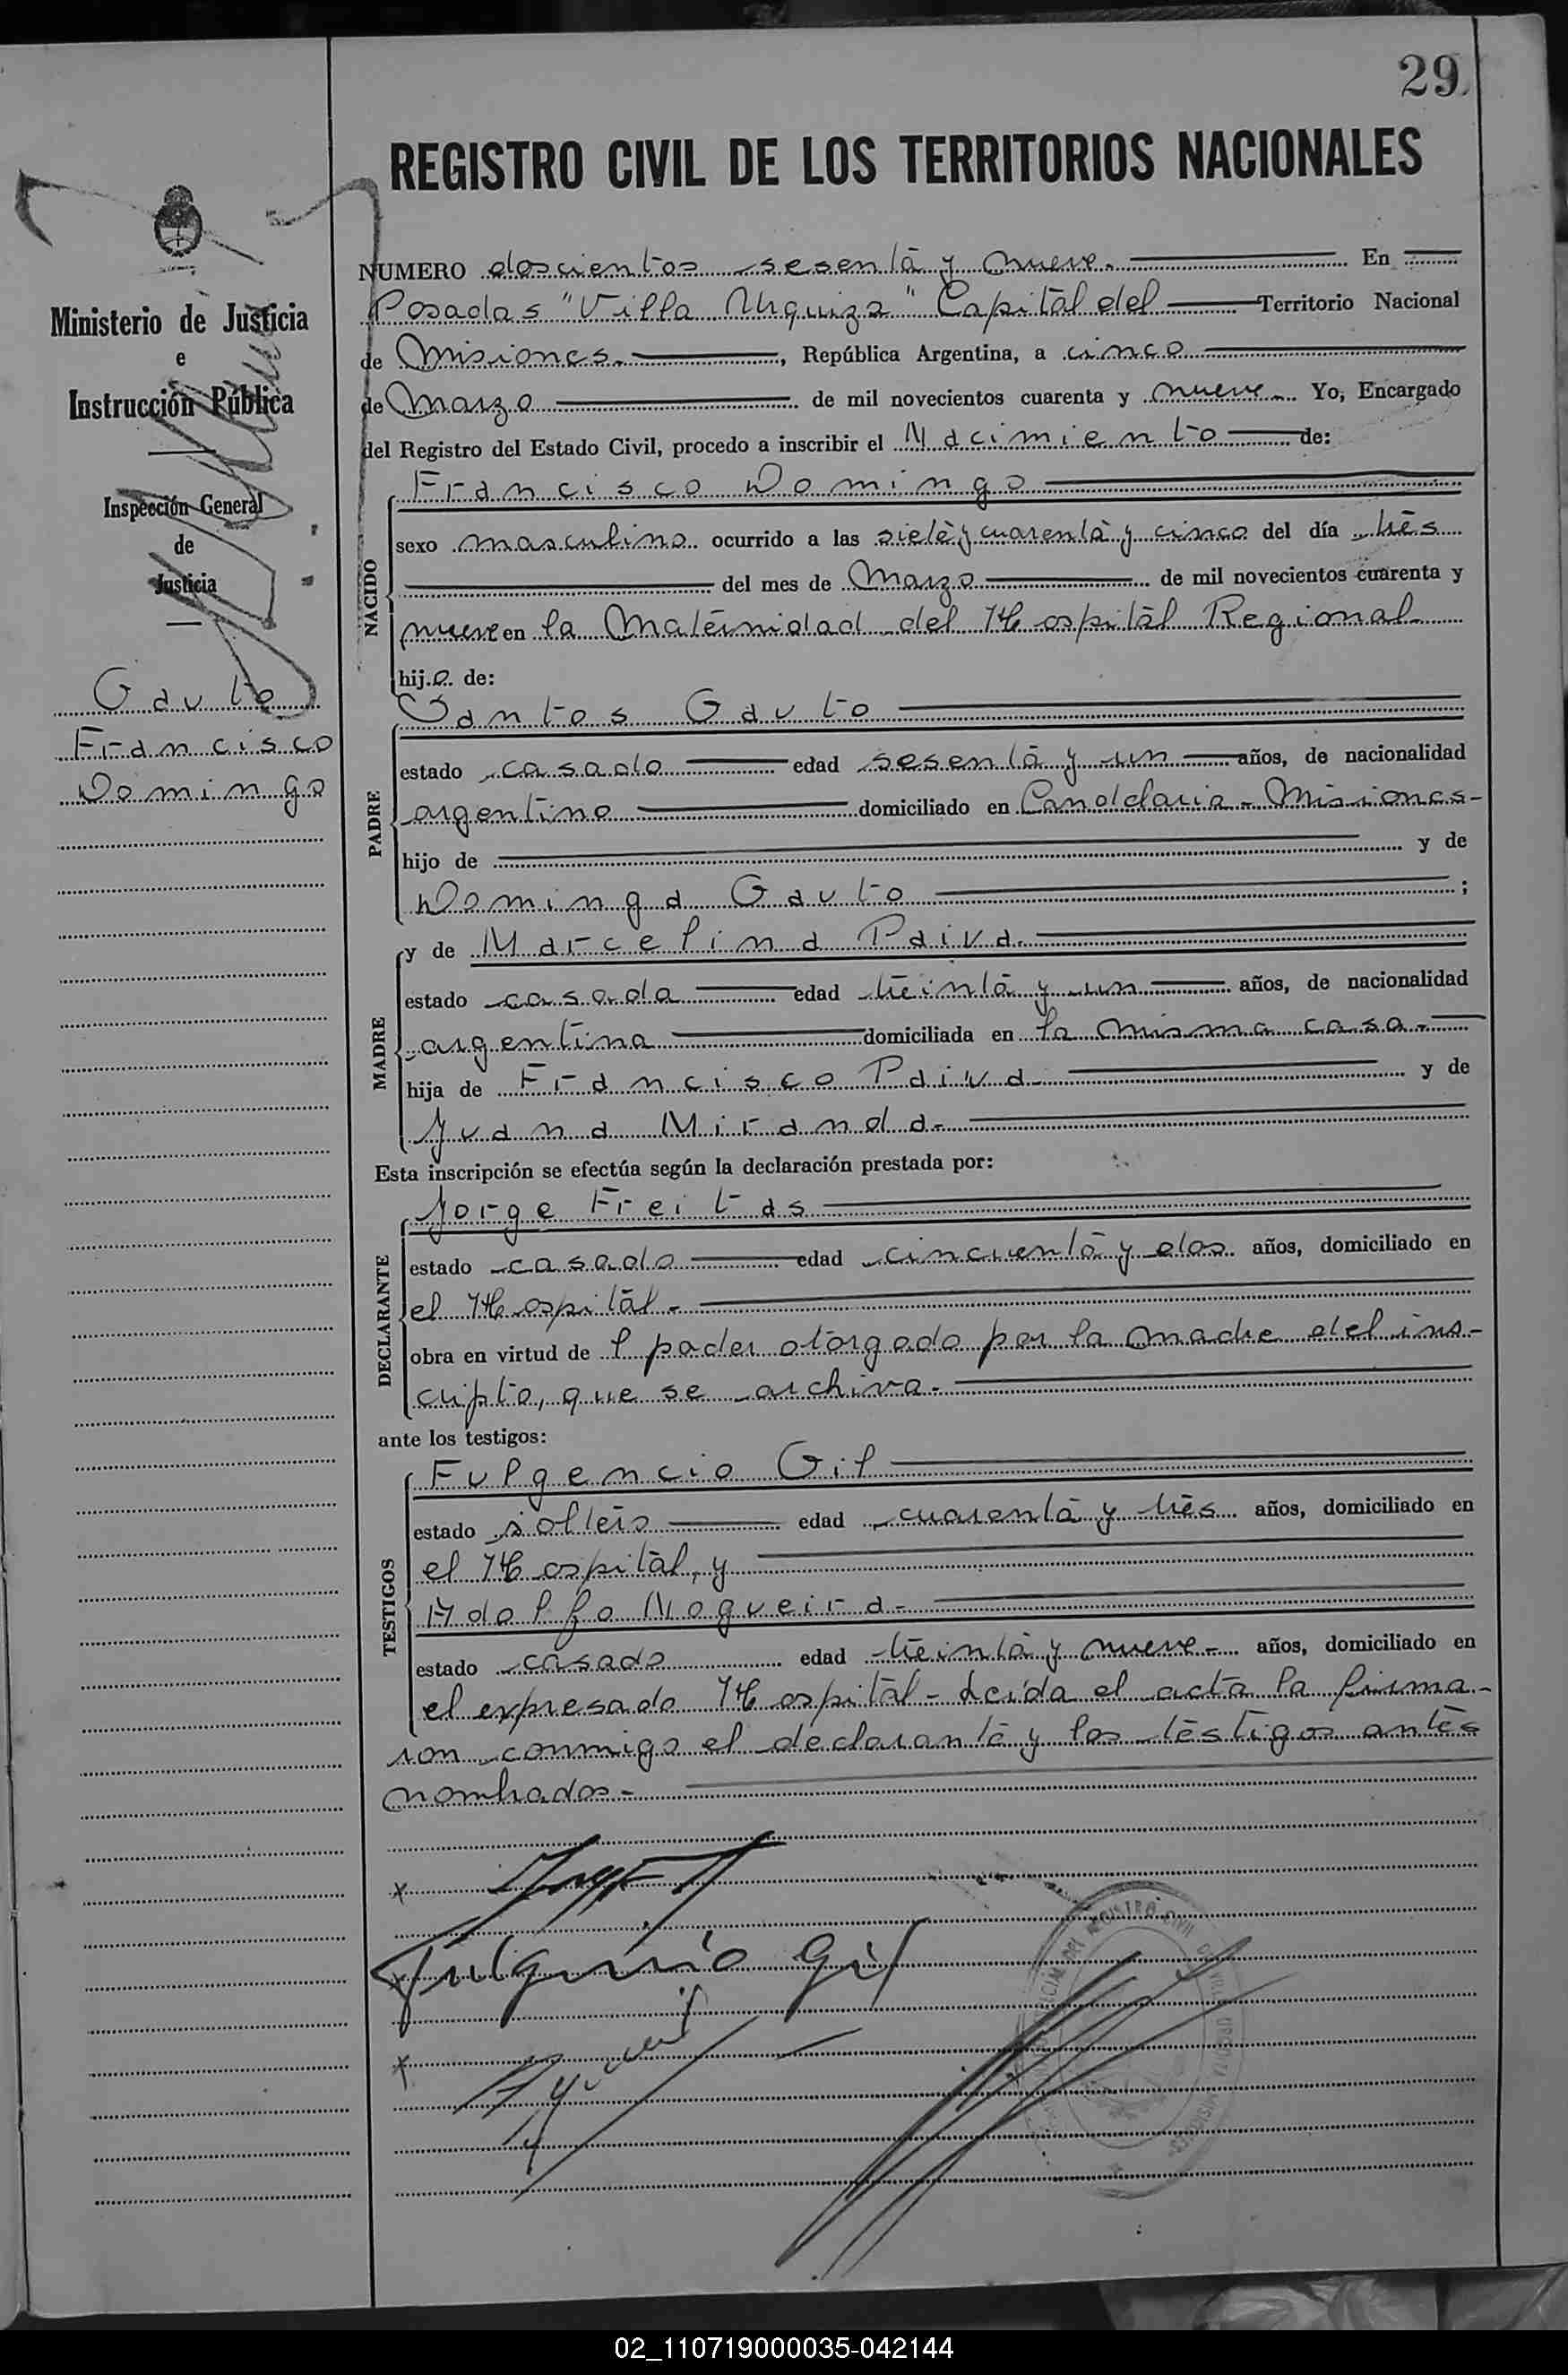 29
REGISTRO CIVIL DE LOS TERRITORIOS NACIONALES
Ministerio de Justicia
e
Instrucción Pública
Inspección General
de
Justicia
Gauto
Francisco
Domingo
NUMERO doscientos sesenta y nueve. En
Posadas "Villa Urquiza" Capital del Territorio Nacional
de Misiones. , República Argentina, a cinco
de Marzo de mil novecientos cuarenta y nueve. Yo, Encargado
del Registro del Estado Civil, procedo a inscribir el Nacimiento de:
NACIDO
Francisco Domingo
sexo masculino ocurrido a las siete y cuarenta y cinco del día tres
del mes de Marzo de mil novecientos cuarenta y
nueve en la Maternidad del Hospital Regional
hijo de:
PADRE
Santos Gauto
estado casado edad sesenta y un años, de nacionalidad
argentino domiciliado en Candelaria - Misiones-
hijo de y de
Dominga Gauto ;
MADRE
y de Marcelina Paiva.
estado casada edad treinta y un años, de nacionalidad
argentina domiciliada en la misma casa.-
hija de Francisco Paiva y de
Juana Miranda-
Esta inscripción se efectúa según la declaración prestada por:
DECLARANTE
Jorge Freitas
estado casado edad cincuenta y dos años, domiciliado en
el Hospital-
obra en virtud del poder otorgado por la madre del ins-
cripto, que se archiva-
ante los testigos:
TESTIGOS
Fulgencio Gil
estado soltero edad cuarenta y tres años, domiciliado en
el Hospital, y
Adolfo Nogueira-
estado casado edad treinta y nueve- años, domiciliado en
el expresado Hospital- Leida el acta la firma-
ron conmigo el declarante y los testigos antes
nombrados-
Fulgencio Gil
02_110719000035-042144